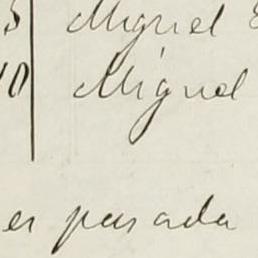 5 Miguel
10 Miguel
er pasada